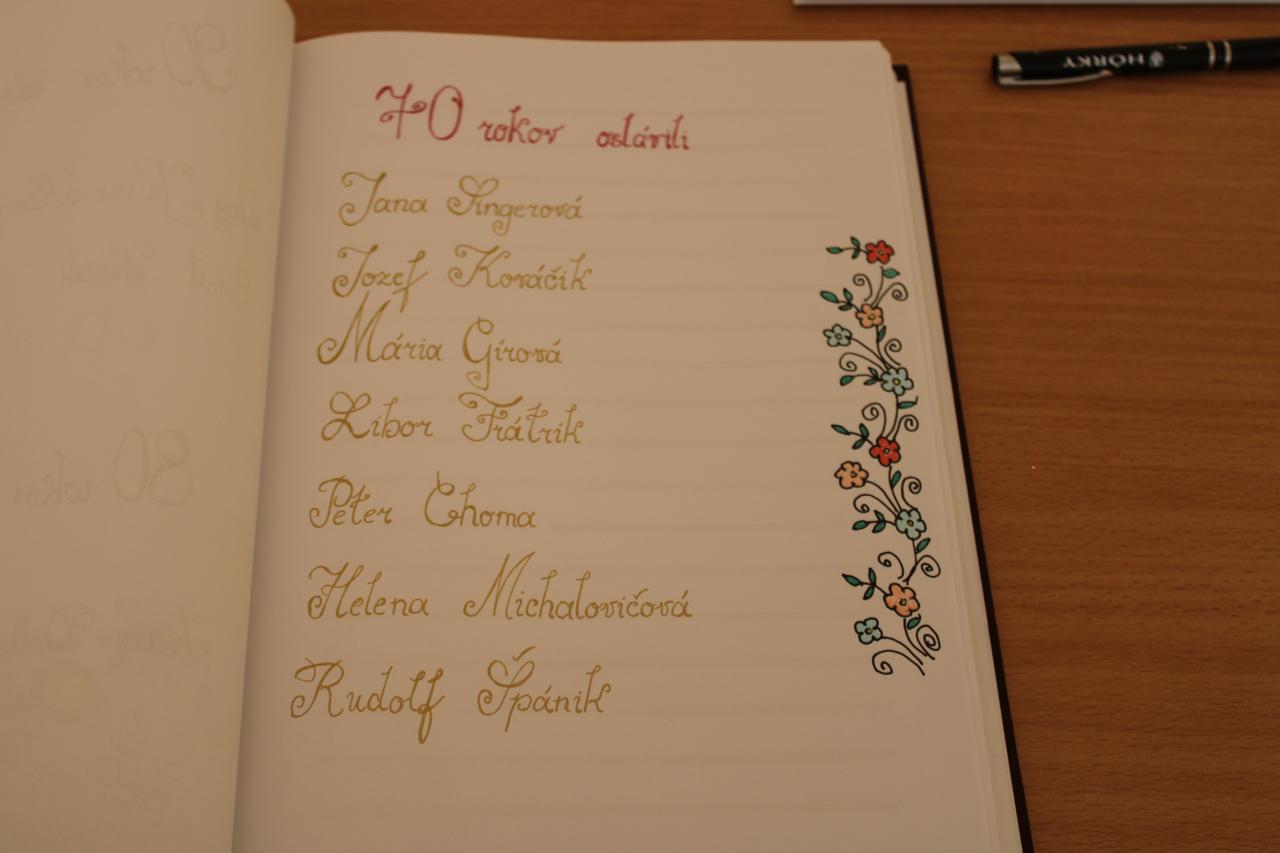 70 rokov oslávili
Jana Singerová
Jozef Kováčik
Mária Gírová
Libor Frátrik
Peter Choma
Helena Michalovičová
Rudolf Špánik
HÔRKY
90 rokov
80 rokov